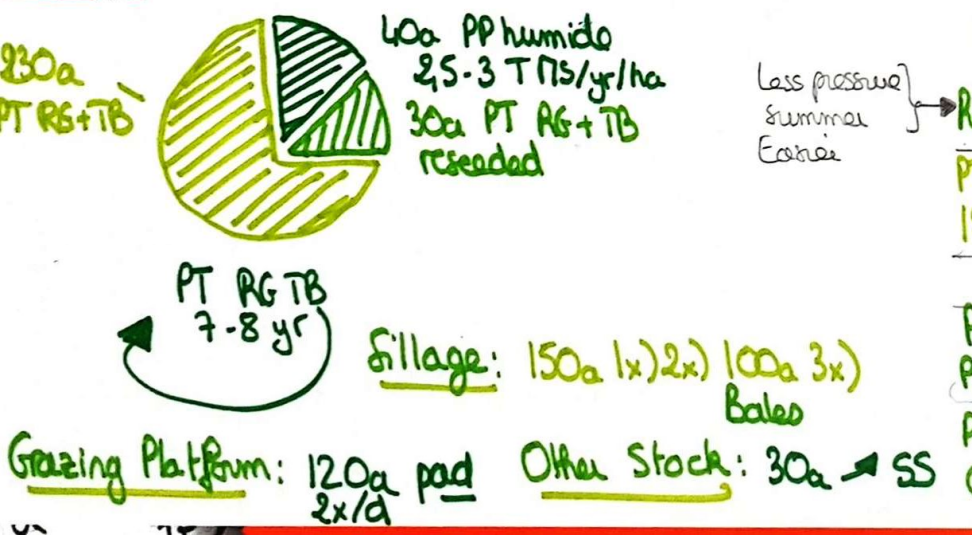 230a
PT RG+TB
40a PP humide
2,5-3 TMS/yr/ha
30a PT RG+TB
reseeded
Less pressure
summer
Easier
PT RG TB
7-8 yr
Sillage: 150a 1x) 2x) 100a 3x)
Bales
Grazing Platform: 120a pad
2x/d
Other Stock: 30a → SS